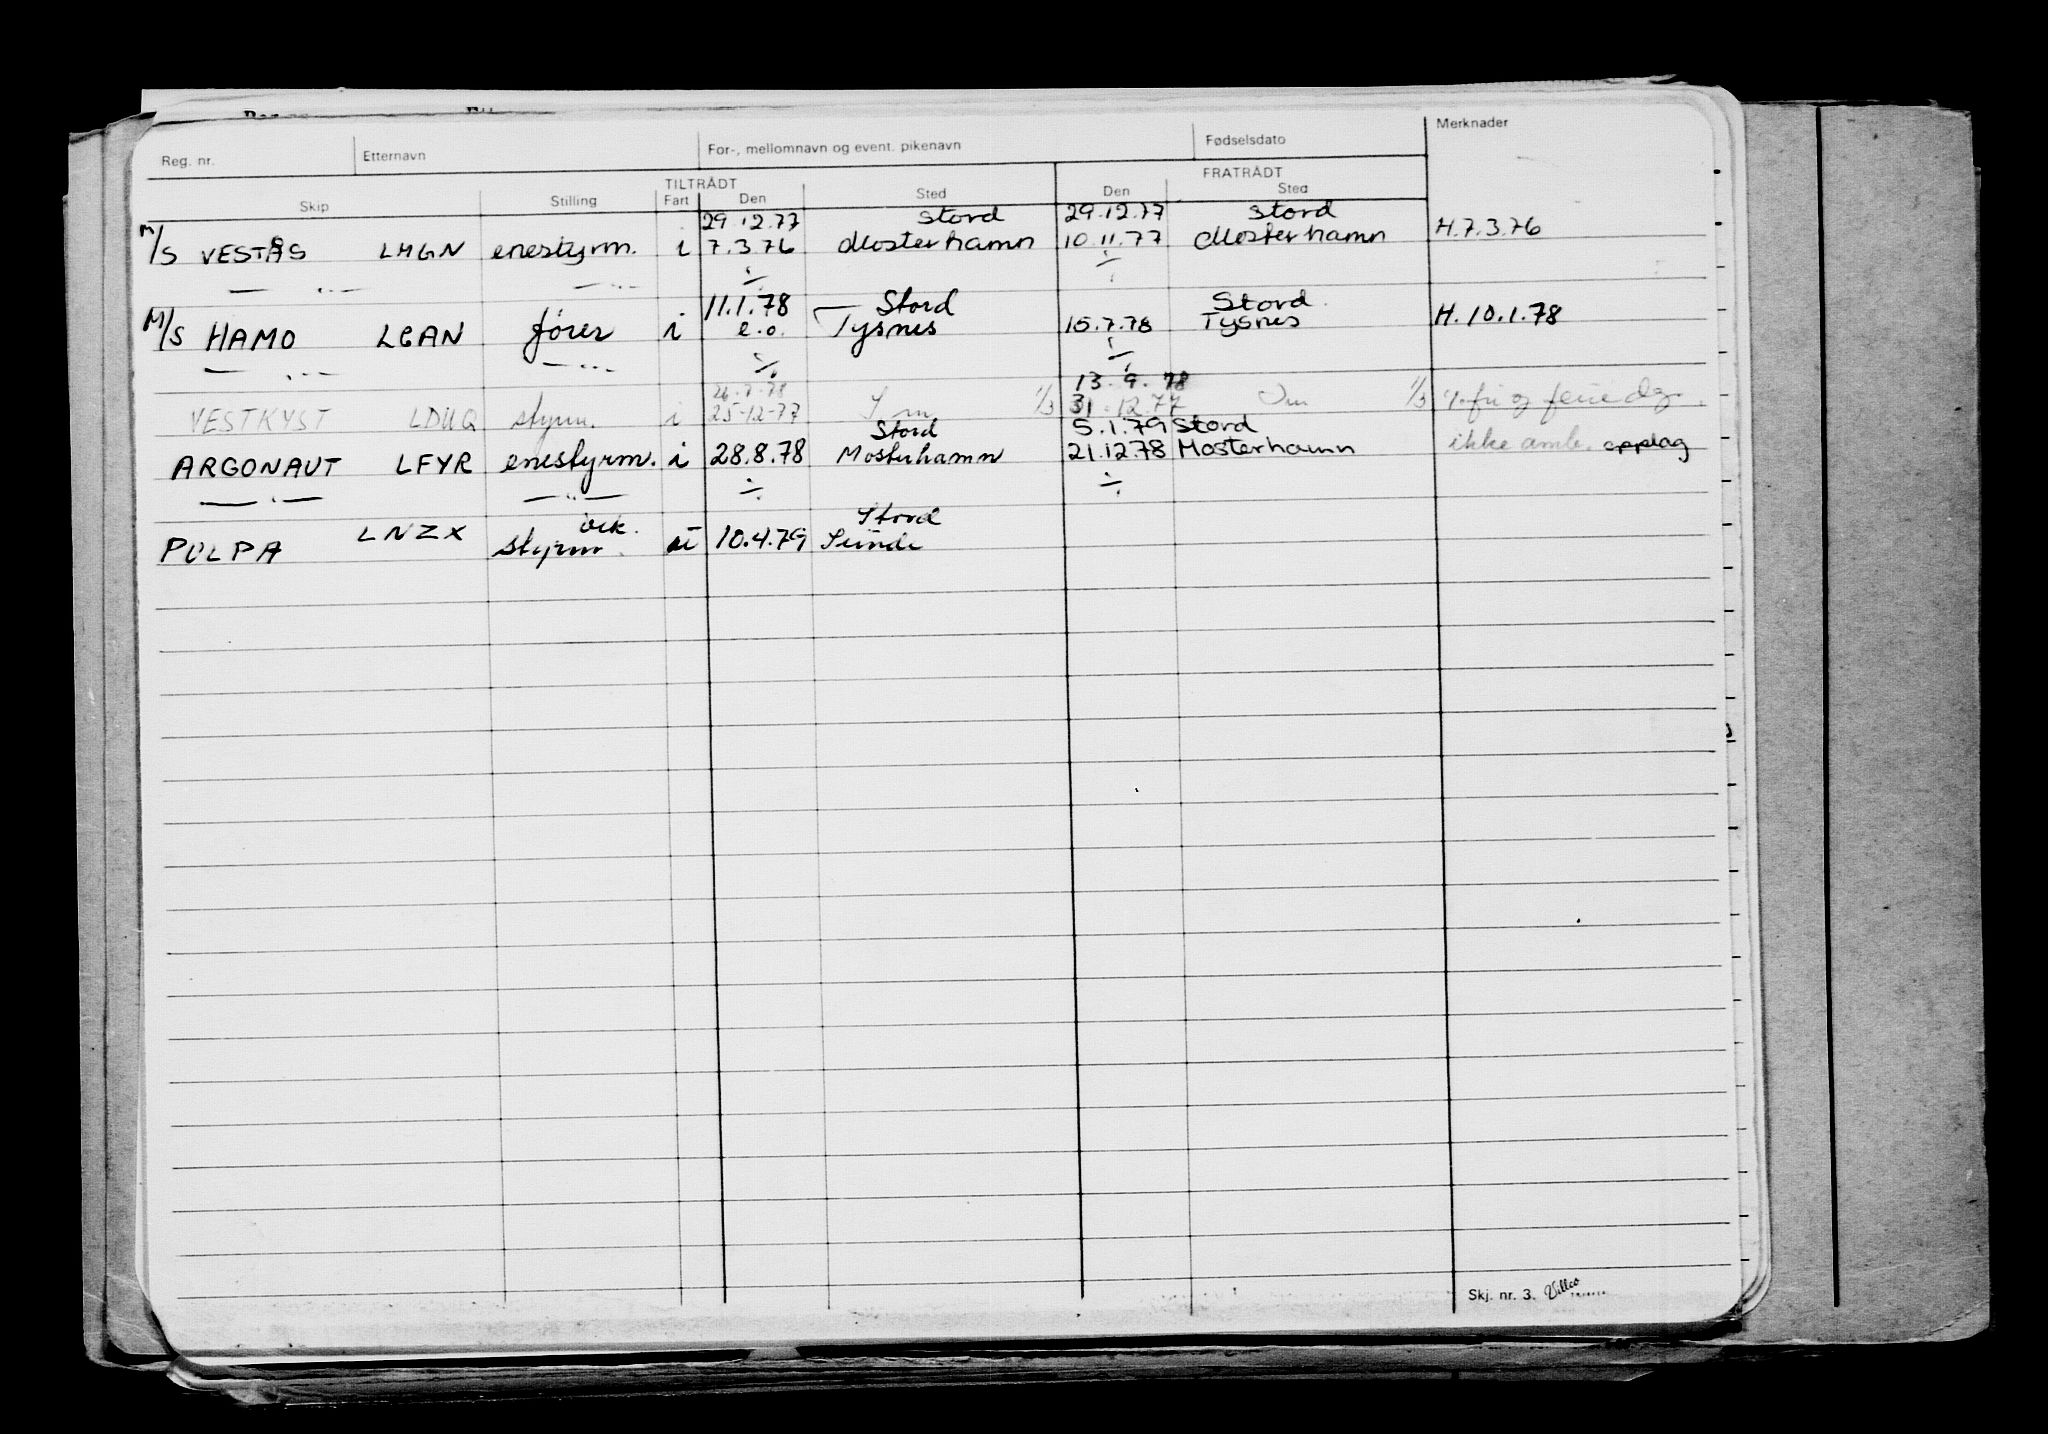 Reg. nr. Etternavn For-, mellomnavn og event. pikenavn Fødselsdato Merknader
TILTRÅDT FRATRÅDT
Skip Stilling Fart Den Sted Den Sted
29.12.77 Stord 29.12.77 Stord
M/S VESTÅS LHGN enestyrm. i 7.3.76 Mosterhamn 10.11.77 Mosterhamn H.7.3.76
— " — — " — ÷ ÷
11.1.78 Stord Stord
M/S HAMO LGAN fører i e.o. Tysnes 15.7.78 Tysnes H.10.1.78
— " — — " — ÷ ÷
26-7-78 13.9.78
VESTKYST LDUQ styrm. i 25-12-77 1/3 31.12.77 1/3 fri og ferie
Stord 5.1.79 Stord
ARGONAUT LFYR enestyrm. i 28.8.78 Mosterhamn 21.12.78 Mosterhamn ikke opplag
— " — — " — ÷ ÷
Stord
PULPA LNZX styrm. 10.4.79 Sunde
Skj. nr. 3. Villco